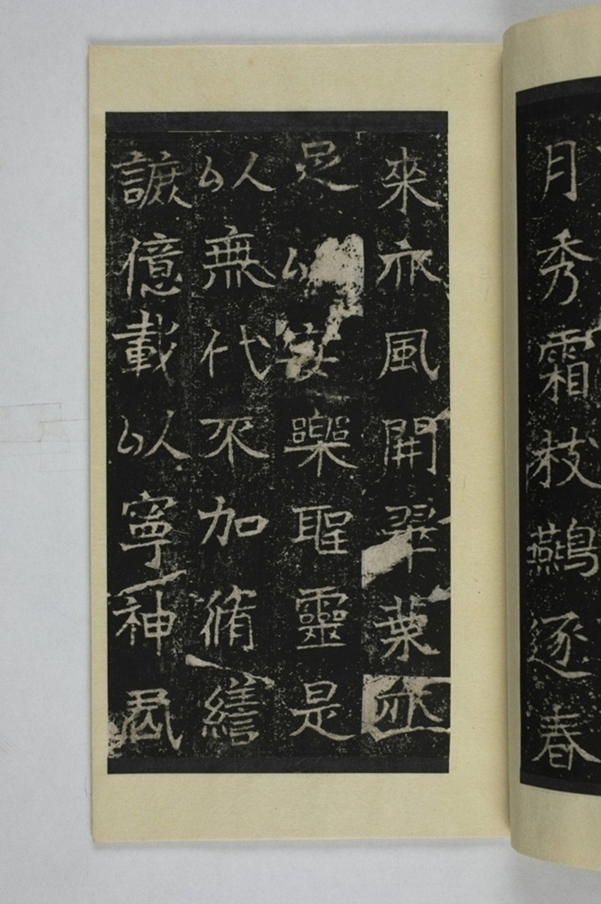 月秀霜枝鷰逐春
來亦風開翠葉亦
足以安樂聖靈是
以無代不加脩繕
億載以寧神